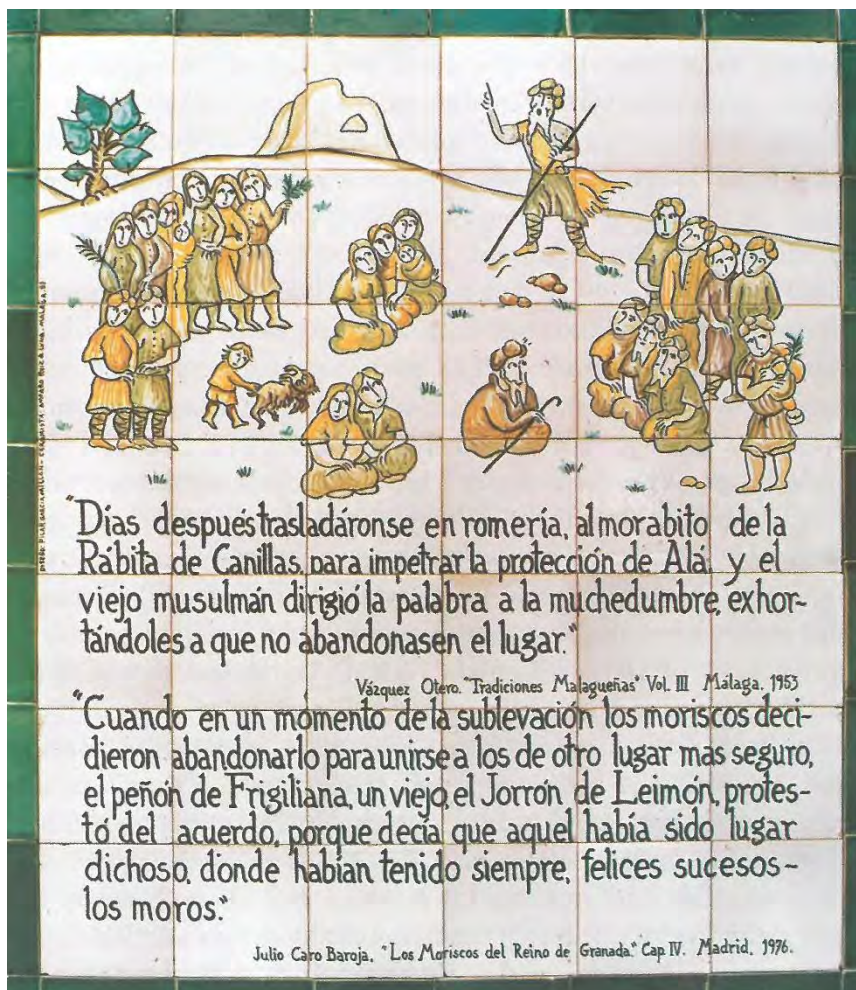 "Días después trasladáronse en romería, al morabito de la
Rábita de Canillas, para impetrar la protección de Alá, y el
viejo musulmán dirigió la palabra a la muchedumbre, exhor-
tándoles a que no abandonasen el lugar."
Vázquez Otero. "Tradiciones Malagueñas" Vol. III Málaga, 1953
"Cuando en un momento de la sublevación los moriscos deci-
dieron abandonarlo para unirse a los de otro lugar mas seguro,
el peñón de Frigiliana, un viejo, el Jorrón de Leimón, protes-
tó del acuerdo, porque decía que aquel había sido lugar
dichoso, donde habían tenido siempre, felices sucesos-
los moros."
Julio Caro Baroja, "Los Moriscos del Reino de Granada." Cap IV. Madrid, 1976.